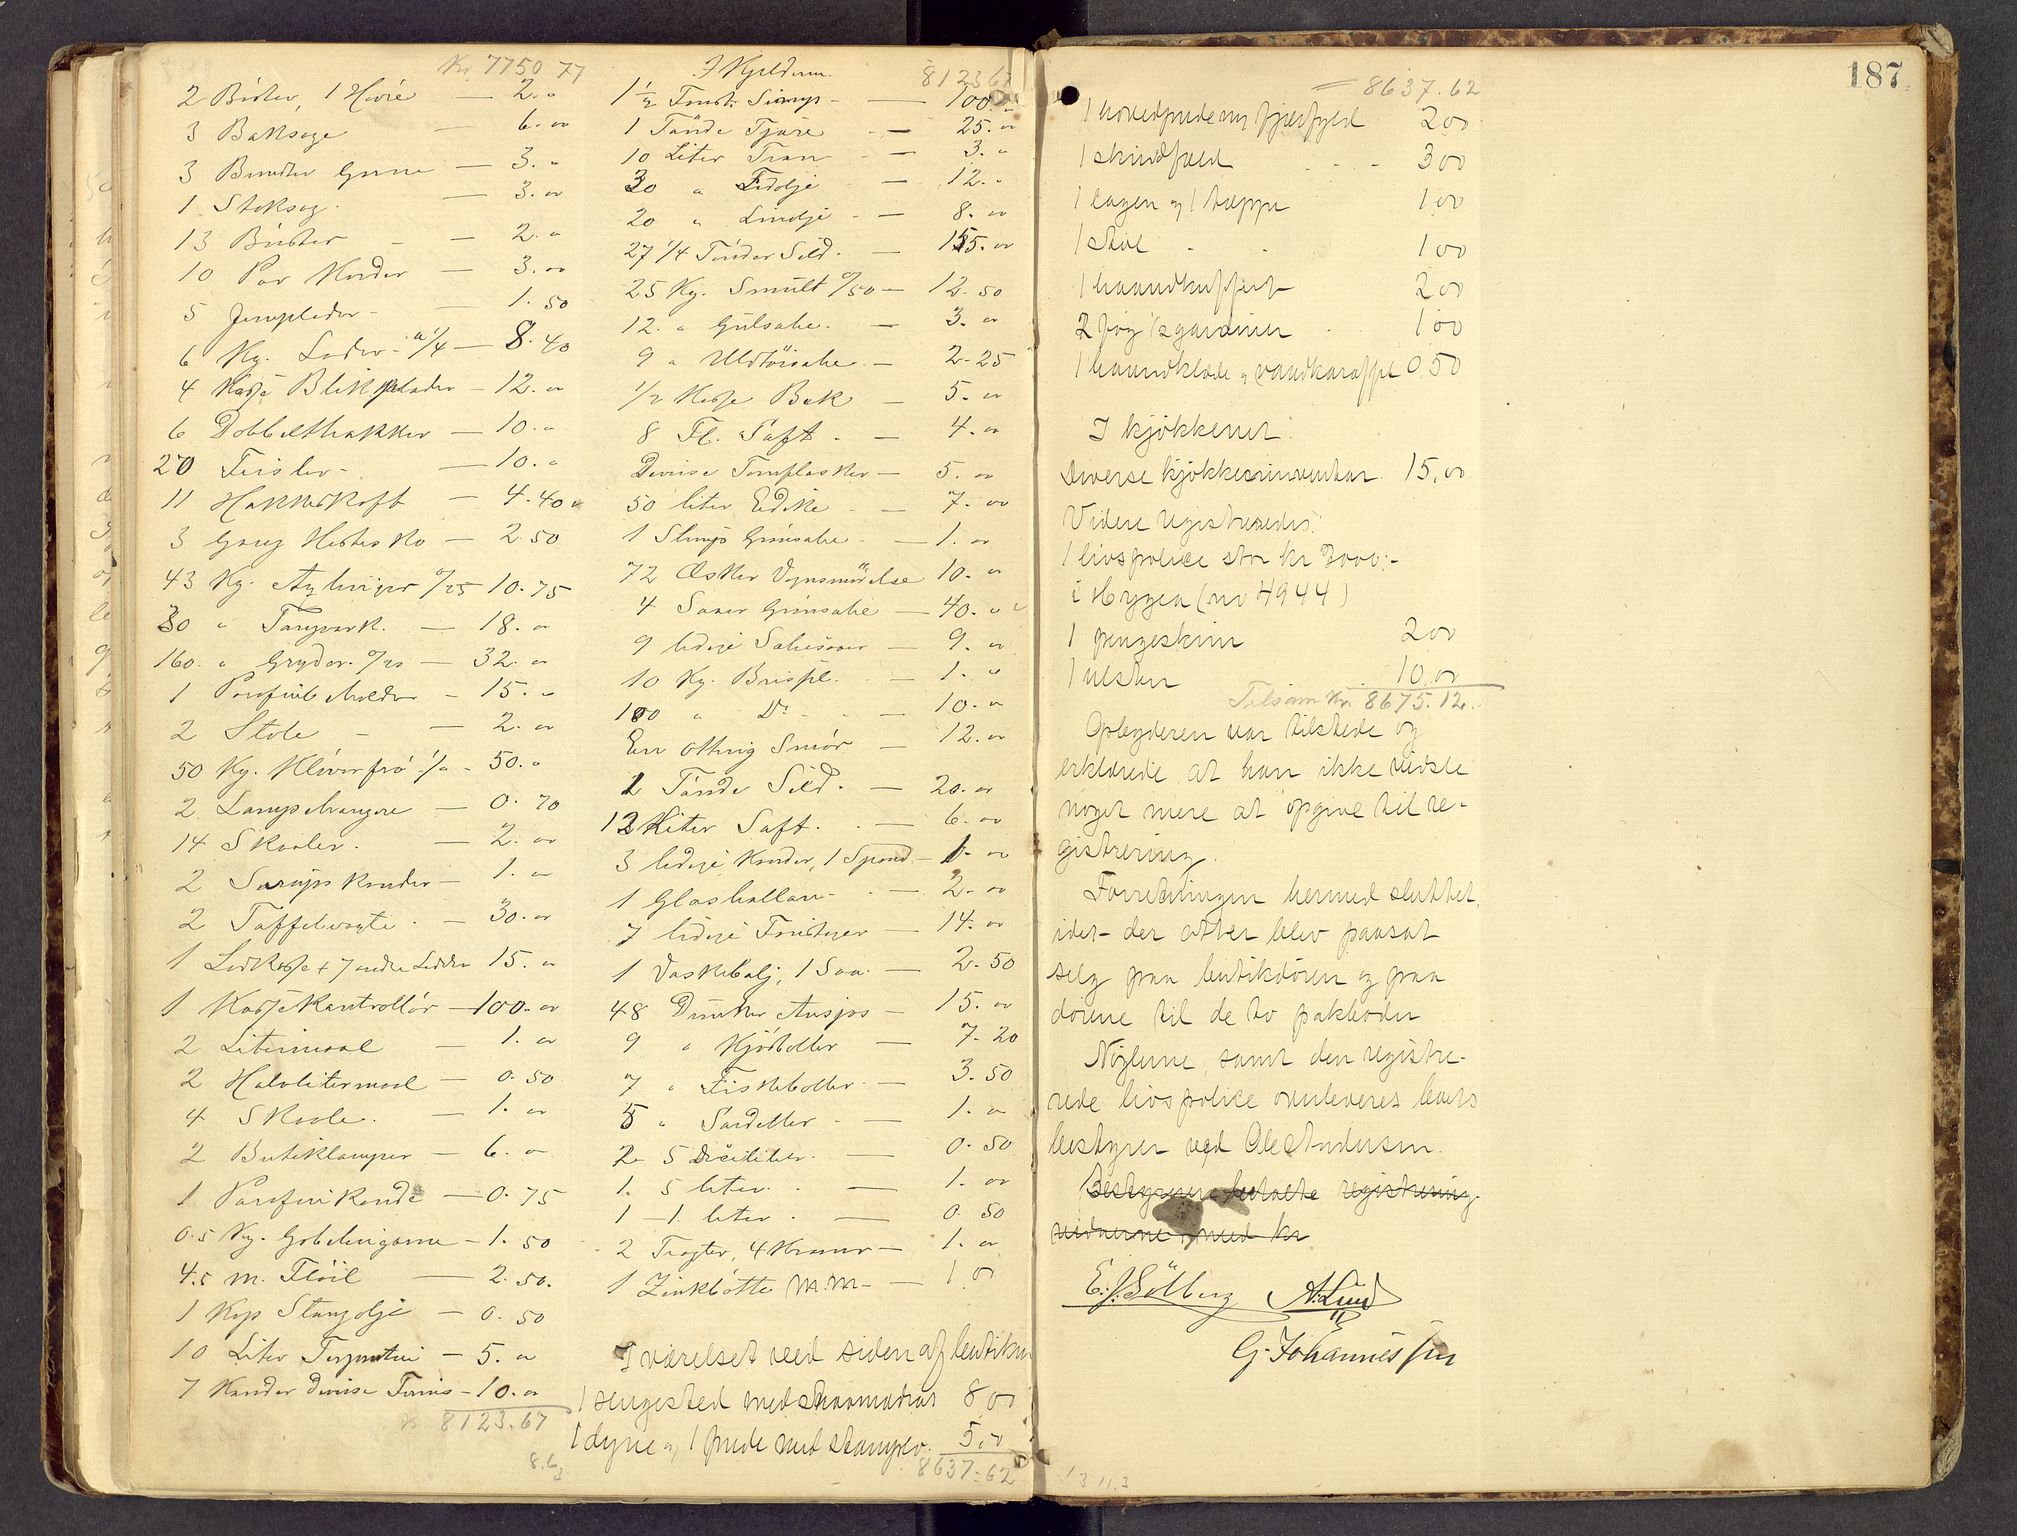 Kr 7750 77
2 Börster, 1 — 2. "
3 Baksage — 6. 00
3 Bundter — 3. "
1 Stoksag — 3. 00
13 Börster — 2. "
10 Par — 3. 00
5 — 1. 50
6 Kg. Læder — 8. 40
4 Kasse Blikplader — 12. 00
6 Dobbelthakker — 10. "
20 — 10. "
11 Hakkeskaft — 4. 40
3 Gang Hestesko — 2. 50
43 Kg. 0/25 10. 75
30 " — 18. 00
160. " Gryder. — 32. 00
1 Parafinbeholder — 15. "
2 Stole — 2. 00
50 Kg. Klöverfrö 1/" — 50. "
2 Lampehængere — 0. 70
14 Skaaler. — 2. 00
2 Sirups Kander — 1. 00
2 Taffelvægte — 30. 00
1 + 7 andre 15. 00
1 Kassekontrollör — 100. 00
2 Litermaal — 1. 00
2 Halvlitermaal — 0. 50
4 Skaale. — 1. 00
2 Butiklamper — 6. 00
1 Parafinkande — 0. 75
0.5 Kg. Gobelingarne — 1. 50
4.5 m. Flöil — 2. 50.
1 Kop Stangolje — 0. 50
10 Liter Terpentin — 5. 00
7 Kander Diverse Fernis — 10. 00
Kr 8123.67
I Kjelderen. 8123 67
1 1/2 Fust. Sirup — 100. 00
1 Tönde Tjære — 25. 00
10 Liter Tran — 3. "
30 " — 12. "
20 " Linolje — 8. 00
27 1/4 Tönder Sild. — 155. 00
25 Kg. Smult 0/50 — 12. 50
12. " Gulsæbe. — 3. 00
9 " Uldtöisæbe. — 2. 25
1/2 Kasse Bak — 5. 00
8 Fl. Saft. — 4. 00
Diverse Tomflasker — 5. 00
50 liter Edike — 7. 00
1 Slump Grönsæbe — 1. 00
72 Æsker Vognsmörelse 10. 00
4 Saaer Grönsæbe — 40. 00
9 ledige Sæbesaaer — 9. 00
10 Kg. — 1. "
100 " Do — 10. 00
En otting Smör — 12. 00
1 Tönde Sild. — 20. 00
12 Liter Saft. — 6. 00
3 ledige Kander, 1 Spand — 1. 00
1 Glasballon — 2. 00
7 ledige Fustager — 14. 00
1 Vaskebalj, 1 Saa. — 2. 50
48 Dunker Ansjos — 15. 00
9 " Kjödboller — 7. 20
7 " Fiskeboller — 3. 50
5 " Sardeller — 1. 00
2 5 Deciliter. — 0. 50
1. 5 liter — 1. 00
1 — 1 liter. — 0. 50
2 Tragter, 4 Kraner — 1. 00
1 Zinkbötte m.m. — 1 00
I værelset ved siden af butiken
1 sengested med straamadras 8 00
1 dyne og 1 pude med 5,00
8637.62
187.
8637.62
1 hovedpude m/ fjærfyld 2 00
1 skindfæld 3 00
1 lagen og 1 tæppe 1 00
1 stol 1 00
1 haandkuffert 2 00
2 fag gardiner 1 00
1 haandklæde og vandkaraffel 0 50
I kjökkenet:
Diverse kjökkeninventar 15,00
Videre registreredes:
1 livspolice stor kr 3000,-
i Hygea (no 4944)
1 pengeskrin 2 00
1 ulster 10.00
Tilsam. Kr. 8675.12.
Opbyderen var tilstede og
erklærede at han ikke vidste
noget mere at opgive til re-
gistrering.
Forretningen hermed sluttet,
idet der atter blev paasat
segl paa butikdören og paa
dörene til de to pakboder
Nöglerne samt den registre-
rede livspolice overleveres boets
bestyrer ved Ole Andersen.
Bestyreren betalte registrering-
med kr
E. J. Sölberg A. Lund
G. Johannessen